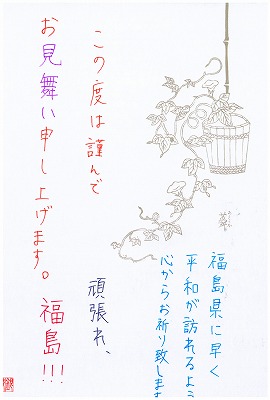 この度は謹んで
お見舞い申し上げます。福島!!!
頑張れ、
福島県に早く
平和が訪れるよう
心からお祈り致しま